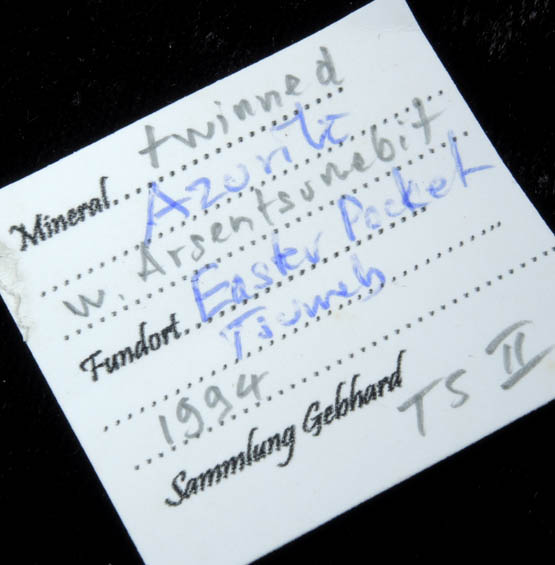 Mineral twinned
Azurit
w. Arsentsumebit
Fundort Easter Pocket
Tsumeb
1994
Sammlung Gebhard TS II